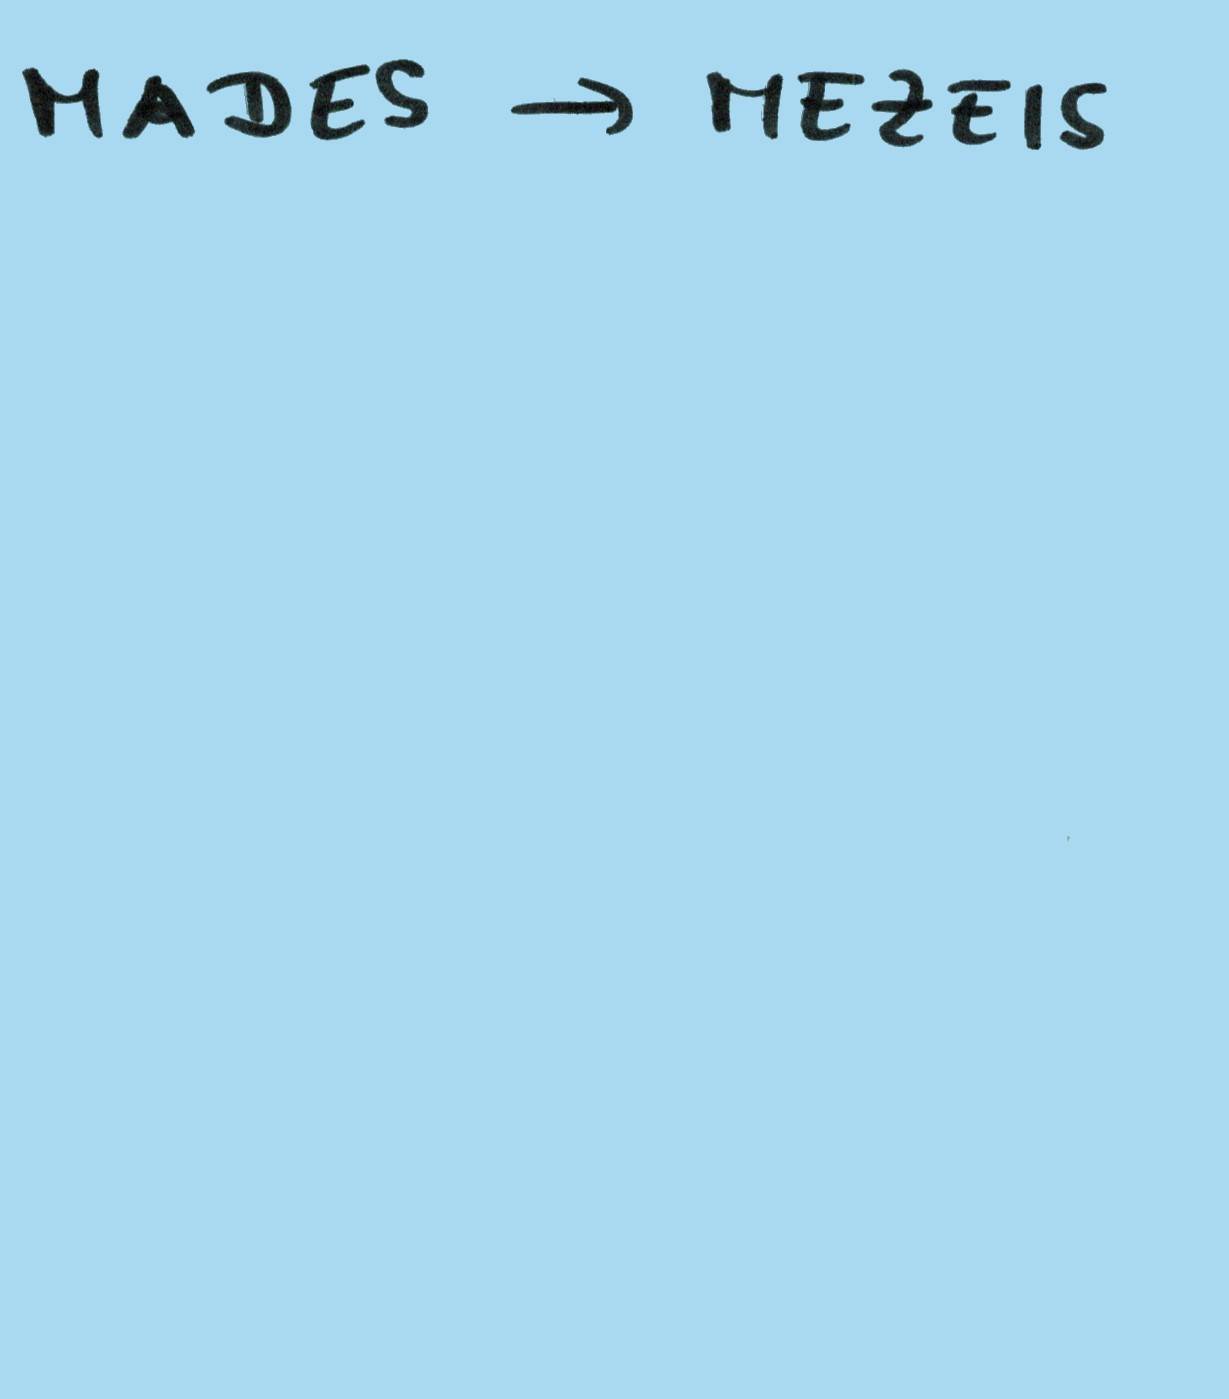 MADES → MEZEIS